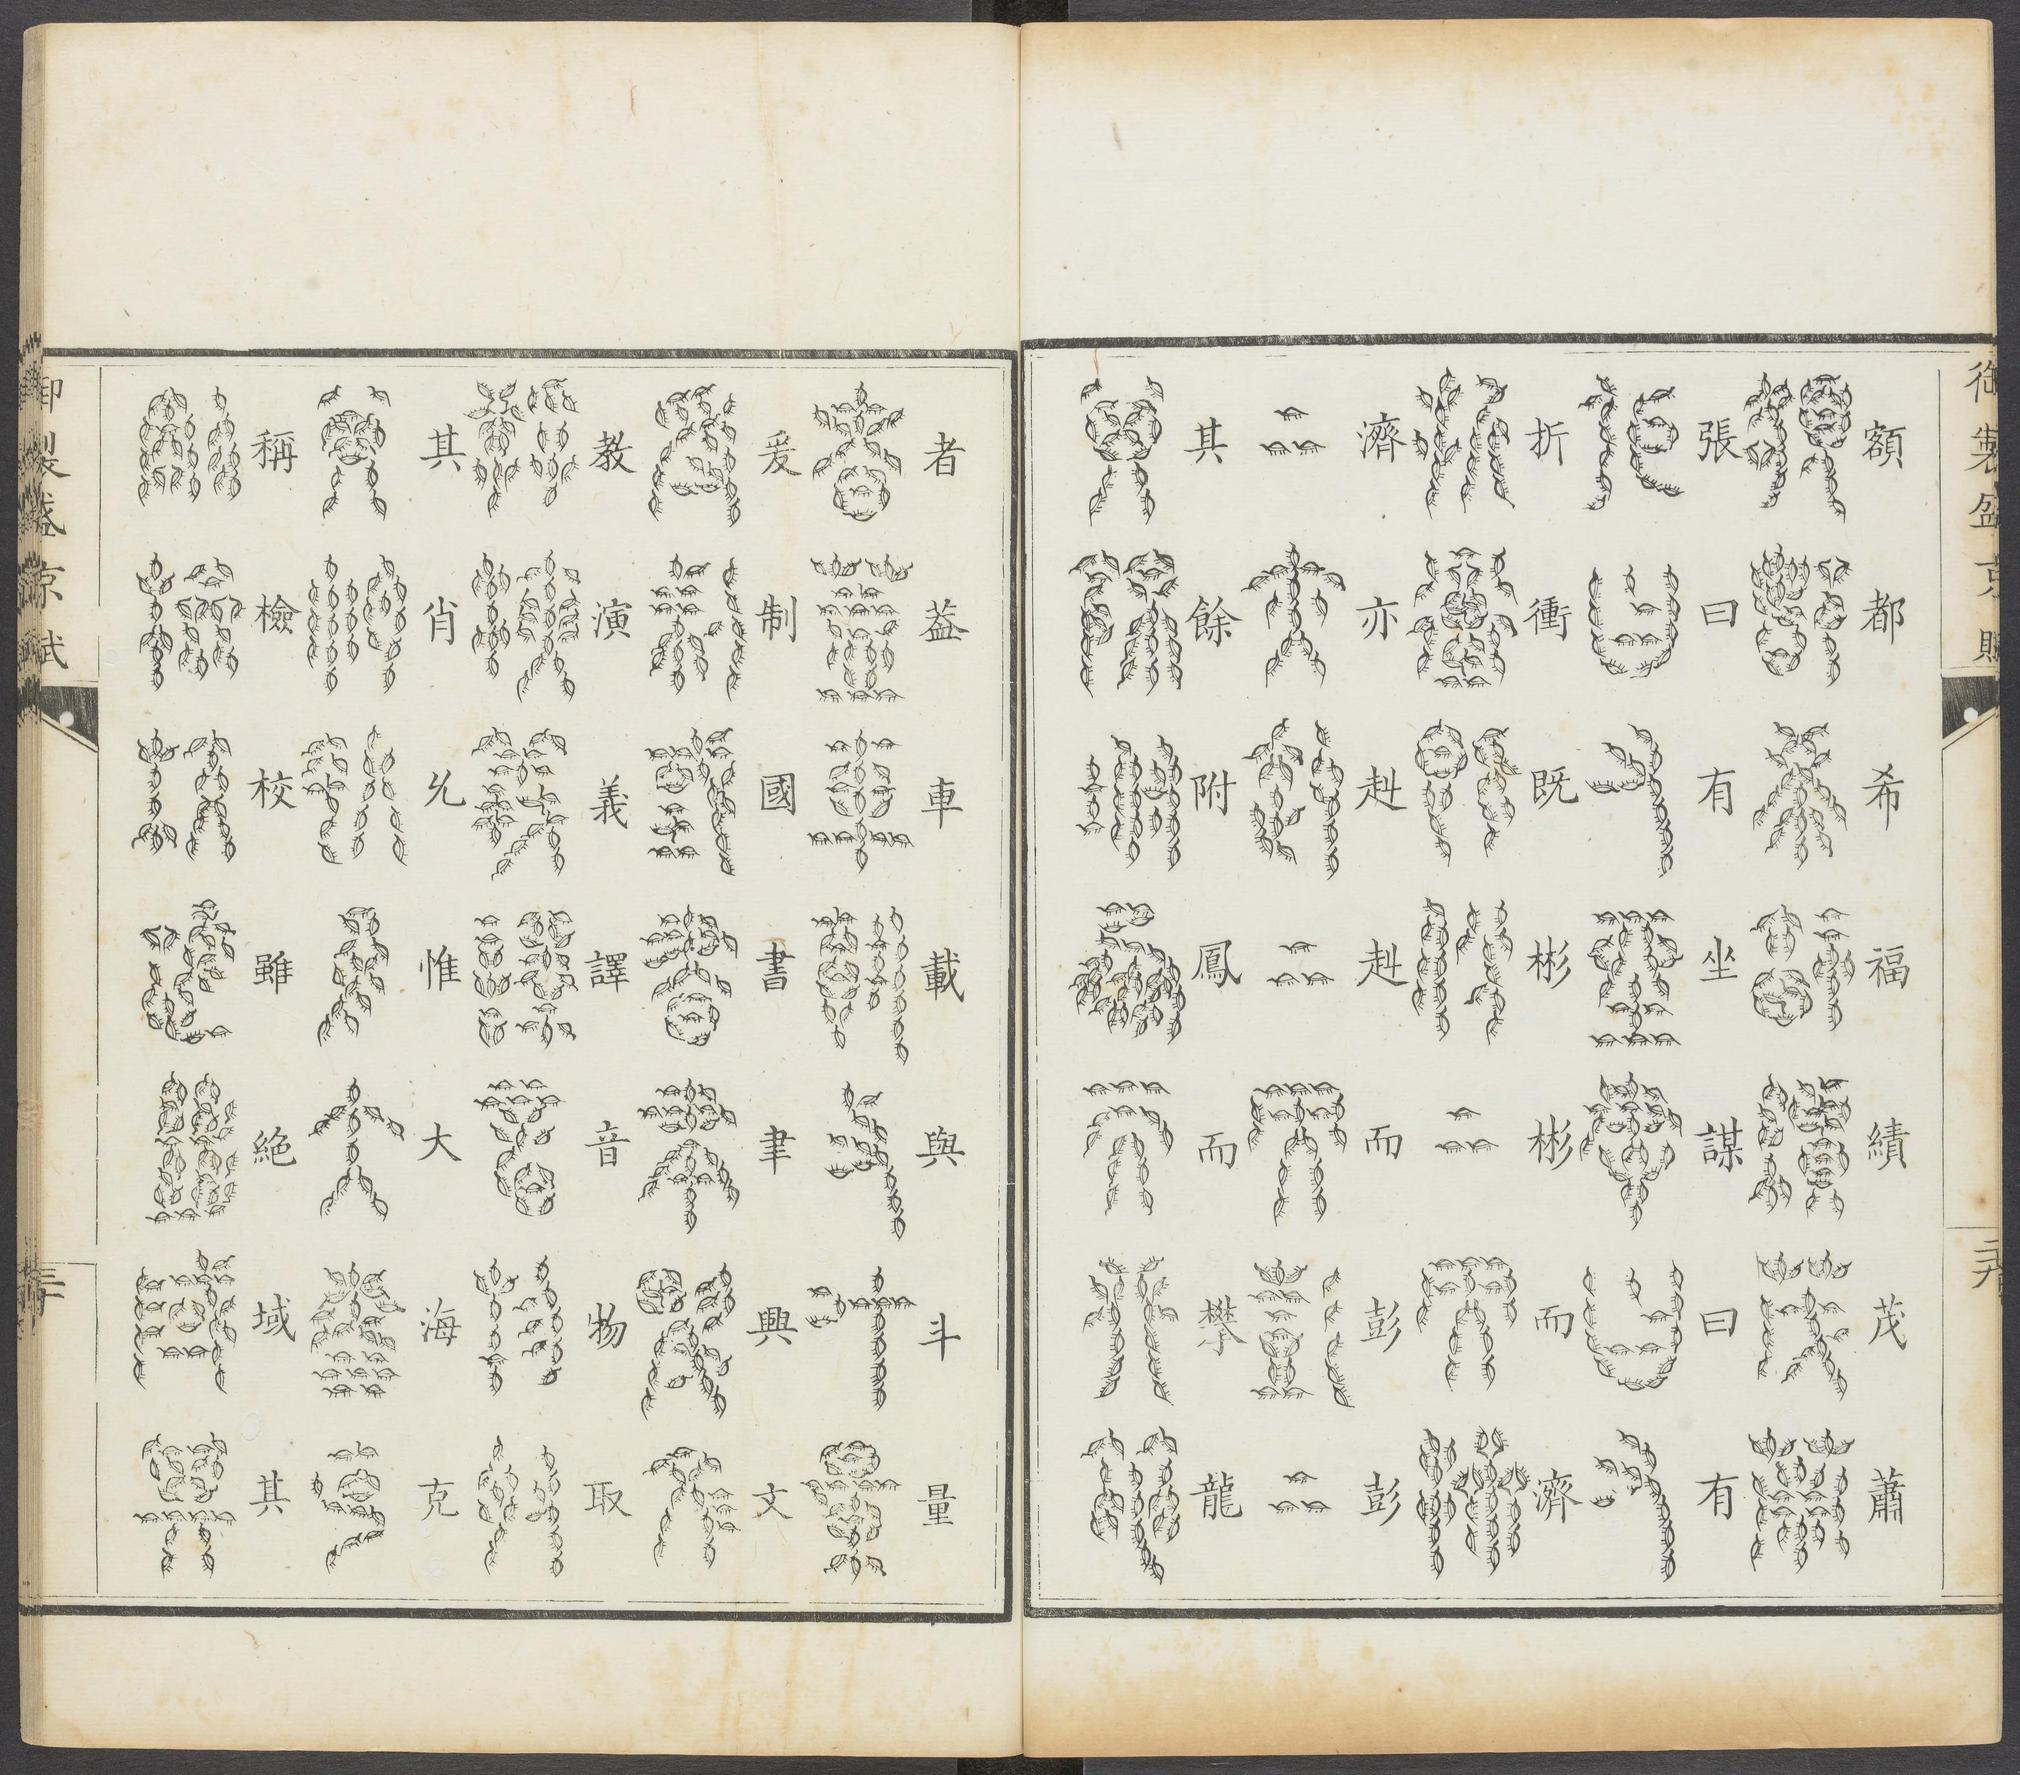 御製盛京賦
二九
額都希福績茂蕭
張曰有坐謀曰有
折衝既彬彬而濟
濟亦赳赳而彭彭
其餘附鳳而攀龍
者葢車載與斗量
爰制國書聿興文
教演義譯音物取
其肖允惟大海克
稱檢校雖絶域其
御製盛京賦
三十